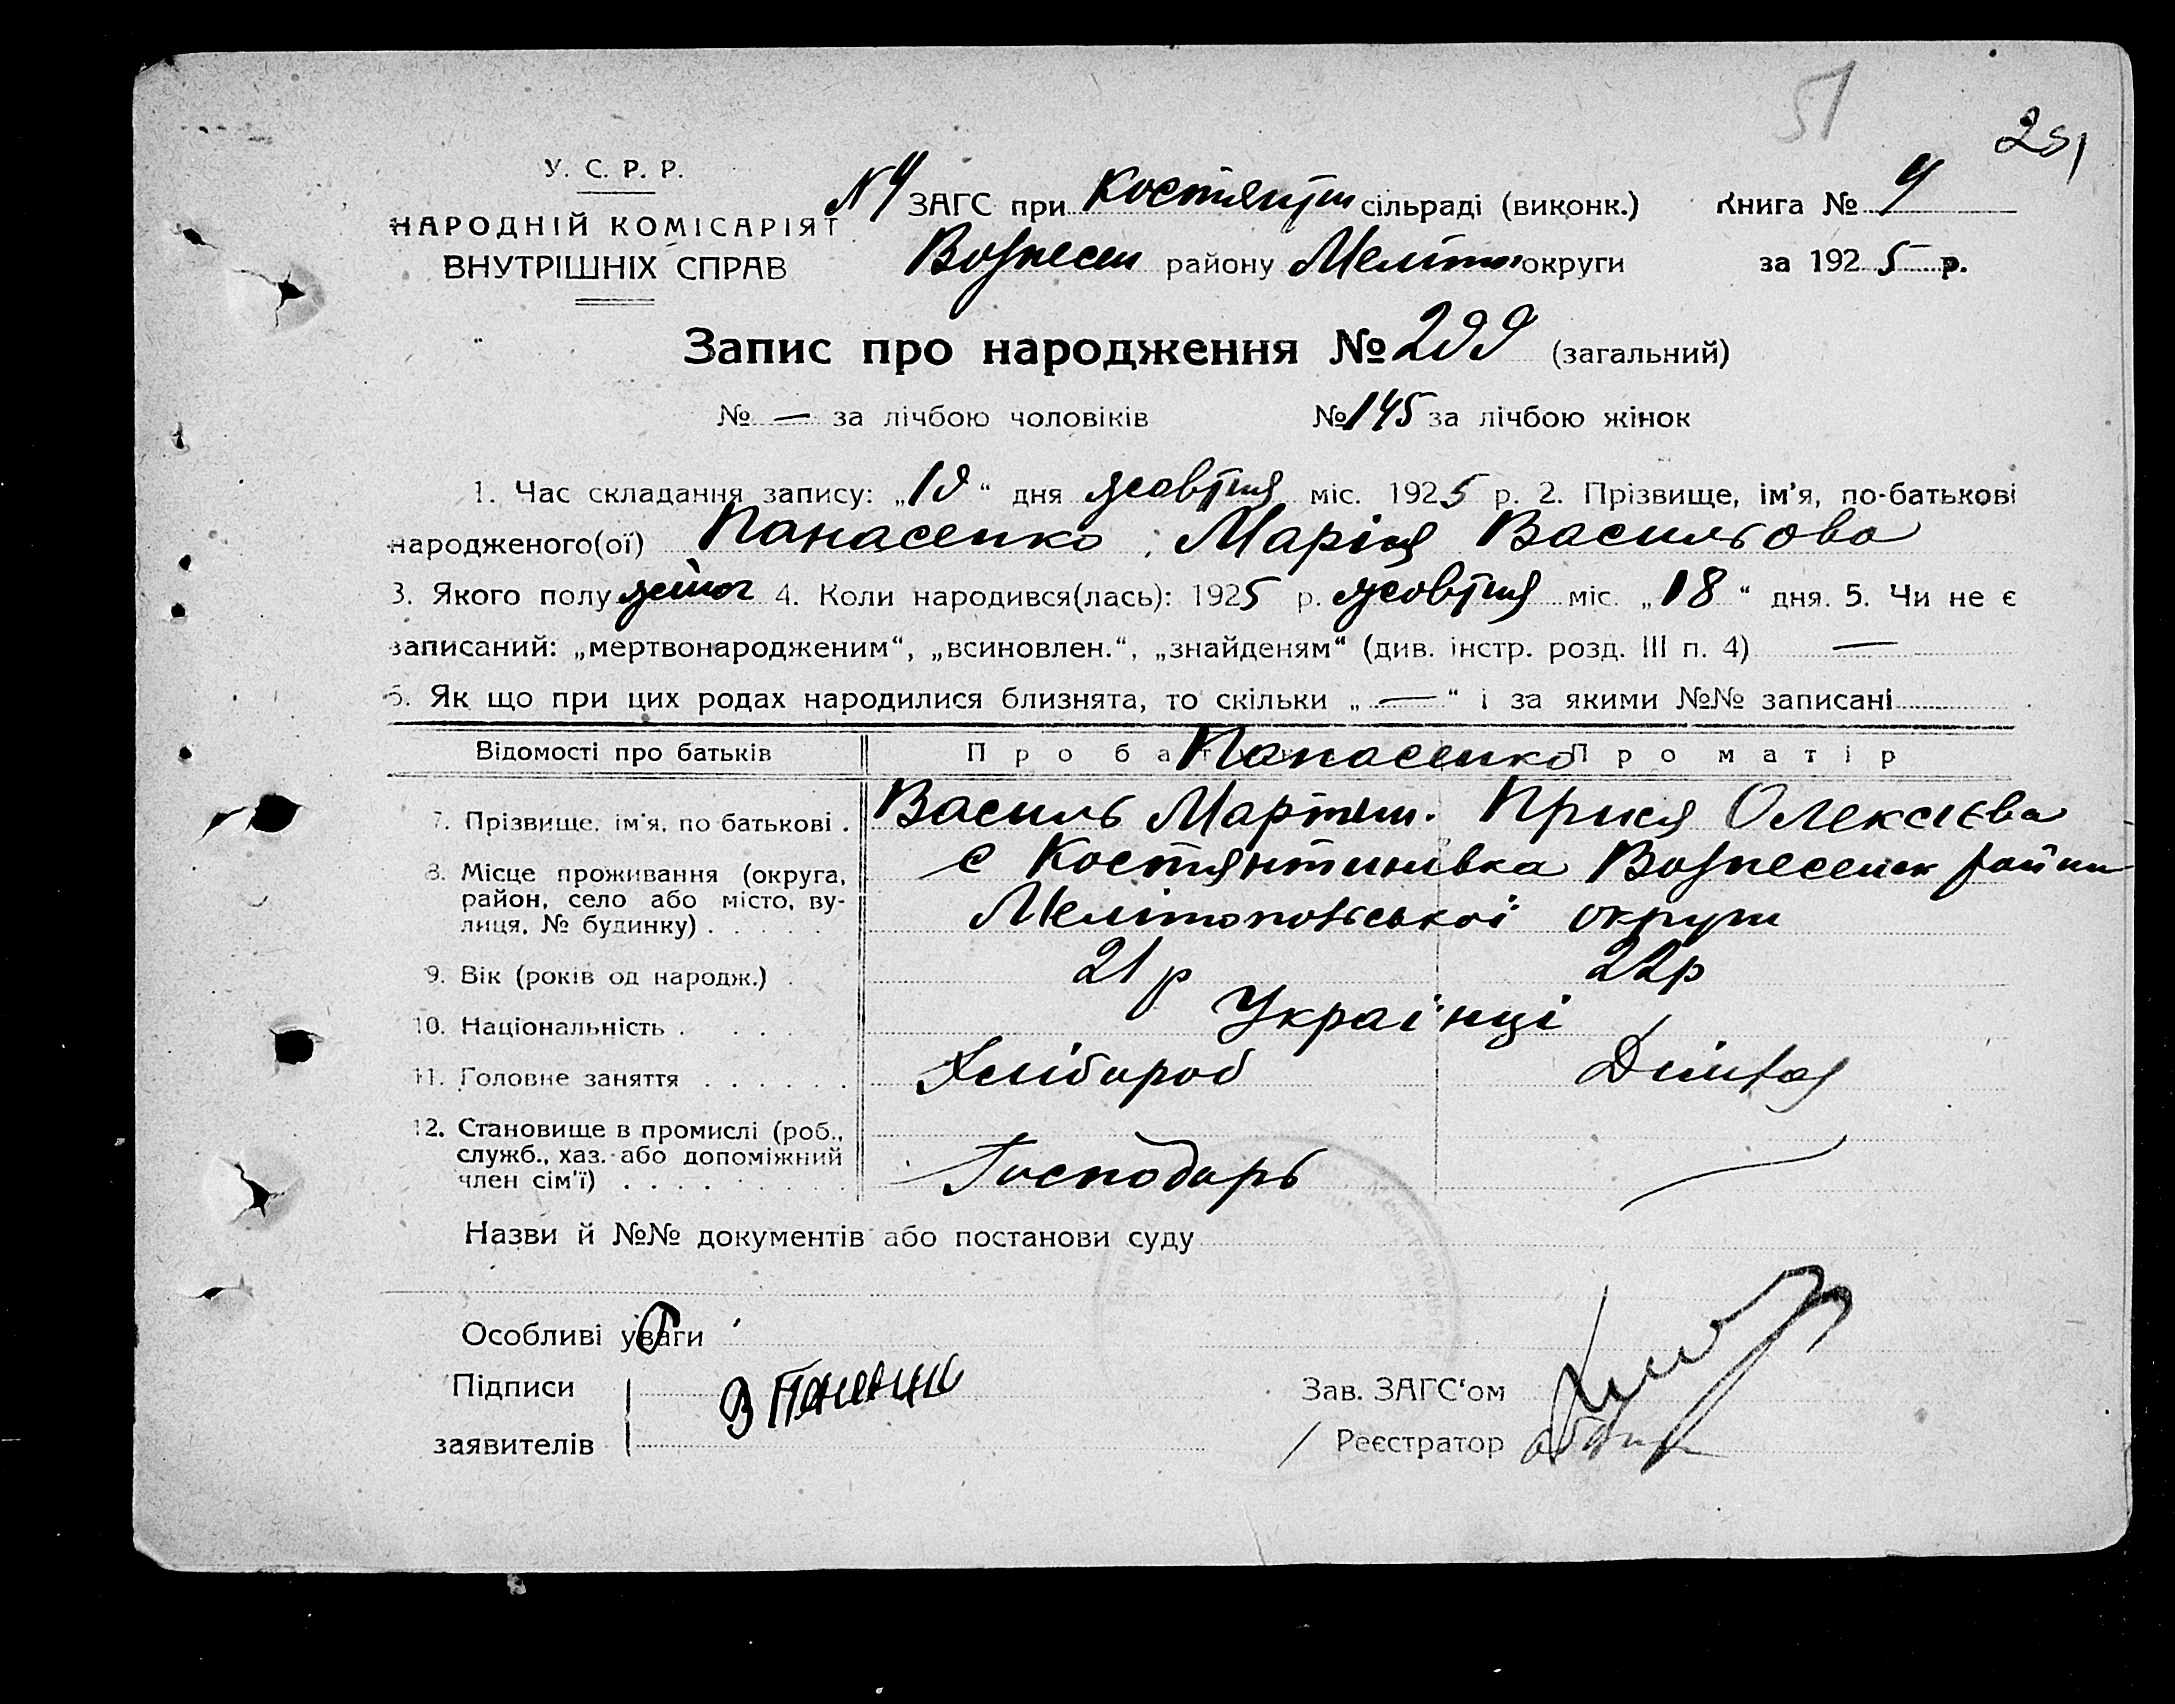 51
251
У. С. Р. Р.
НАРОДНІЙ КОМІСАРІЯТ
ВНУТРІШНІХ СПРАВ
№ 4 ЗАГС при Костянтин сільраді (виконк.) Книга № 4
Вознесен району Меліто округи за 1925 р.
Запис про народження № 299 (загальний)
№ — за лічбою чоловіків № 145 за лічбою жінок
1. Час складання запису: „19“ дня жовтня міс. 1925 р. 2. Прізвище, ім'я, по-батькові
народженого(ої) Панасенко Марія Васильова
3. Якого полу жіноч 4. Коли народився(лась): 1925 р. жовтня міс. „18“ дня. 5. Чи не є
записаний: „мертвонародженим“, „всиновлен.“, „знайденям“ (див. інстр. розд. III п. 4) —
6. Як що при цих родах народилися близнята, то скільки „—“ і за якими №№ записані
Відомості про батьків Про ба Панасенко Про матір
7. Прізвище, ім'я, по батькові . Василь Мартин. Прися Олексієва
8. Місце проживання (округа, с Костянтинівка Вознесенск район
район, село або місто, ву- Мелітопольської округи
лиця, № будинку) . . . . .
9. Вік (років од народж.) . 21 р 22 р
10. Національність . . . Українці
11. Головне заняття . . . . . . Хлібороб
12. Становище в промислі (роб.,
служб., хаз. або допоміжний Господарь —
член сім'ї) . . . . . . . . .
Назви й №№ документів або постанови суду
Особливі уваги
Підписи
заявителів
Зав. ЗАГС'ом
Реєстратор